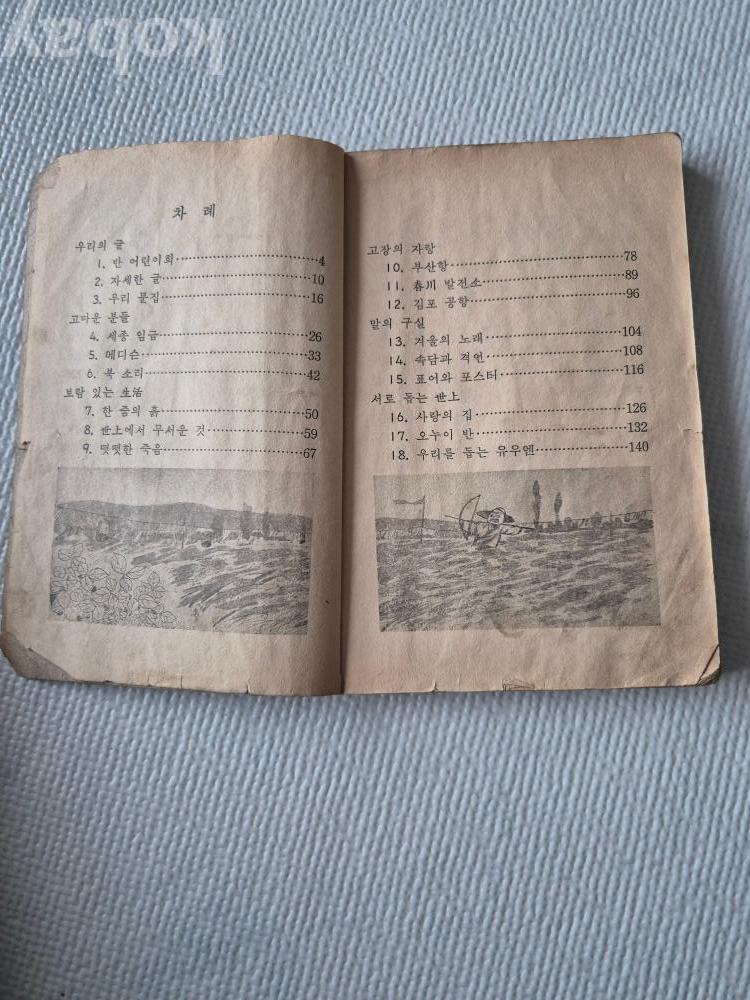 kobay
차 례
우리의 글
1. 반 어린이회 4
2. 자세한 글 10
3. 우리 문집 16
고마운 분들
4. 세종 임금 26
5. 에디슨 33
6. 북 소리 42
보람 있는 生活
7. 한 줌의 흙 50
8. 世上에서 무서운 것 59
9. 떳떳한 죽음 67
고장의 자랑
10. 부산항 78
11. 春川 발전소 89
12. 김포 공항 96
말의 구실
13. 겨울의 노래 104
14. 속담과 격언 108
15. 표어와 포스터 116
서로 돕는 世上
16. 사랑의 집 126
17. 오누이 반 132
18. 우리를 돕는 유우엔 140